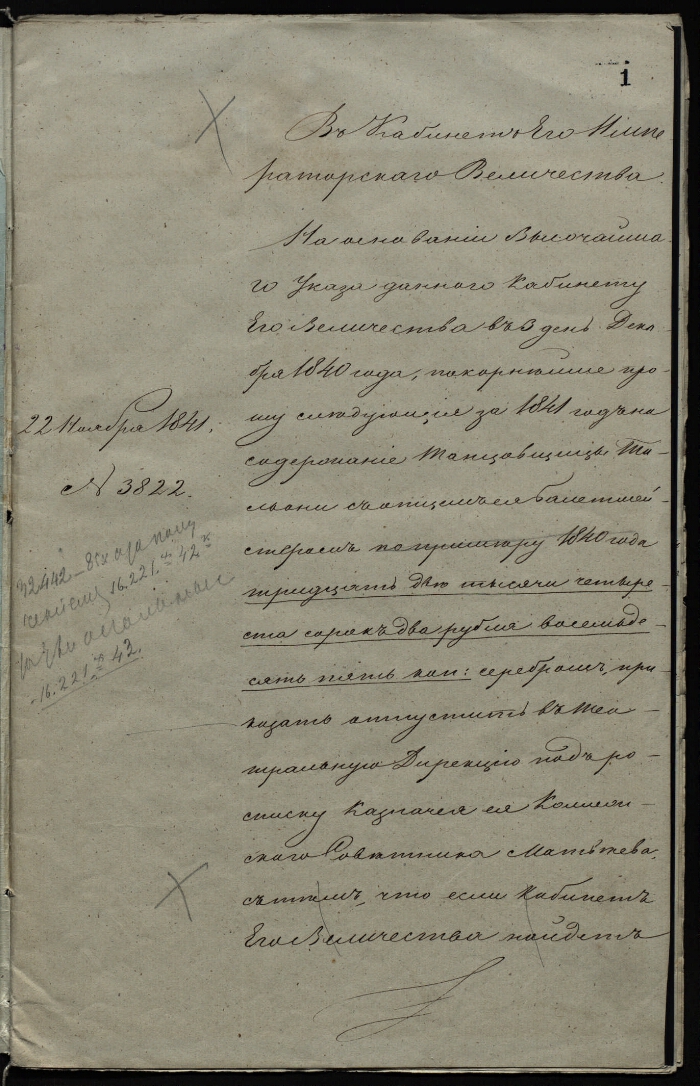 1
Въ Кабинетъ Его Импе
раторскаго Величества.
На основаніи Высочайша-
го Указа даннаго Кабинету
Его Величества въ 3 день Дека-
бря 1840 года, покорнѣйше про-
шу слѣдующіе за 1841 годъ на
содержаніе Танцовщицы Та-
льони съ отцемъ ея балетмей-
стеромъ по примѣру 1840 года
тридцать двѣ тысячи четыре-
ста сорокъ два рубля восемьде-
сять пять коп: серебромъ, при-
казать отпустить въ Теа-
тральную Дирекцію подъ ро-
списку Казначея ея Коллеж-
скаго Совѣтника Матвѣева,
съ тѣмъ, что если Кабинетъ
Его Величества найдетъ
22 Ноября 1841.
N 3822.
32442-85
16.221. 42
16.221. 42.